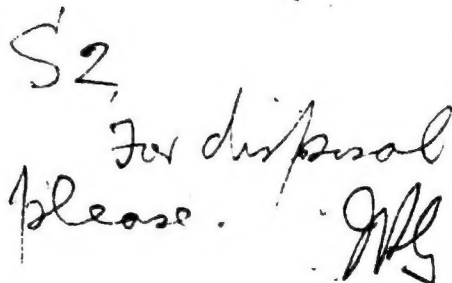 S2
For disposal
please.